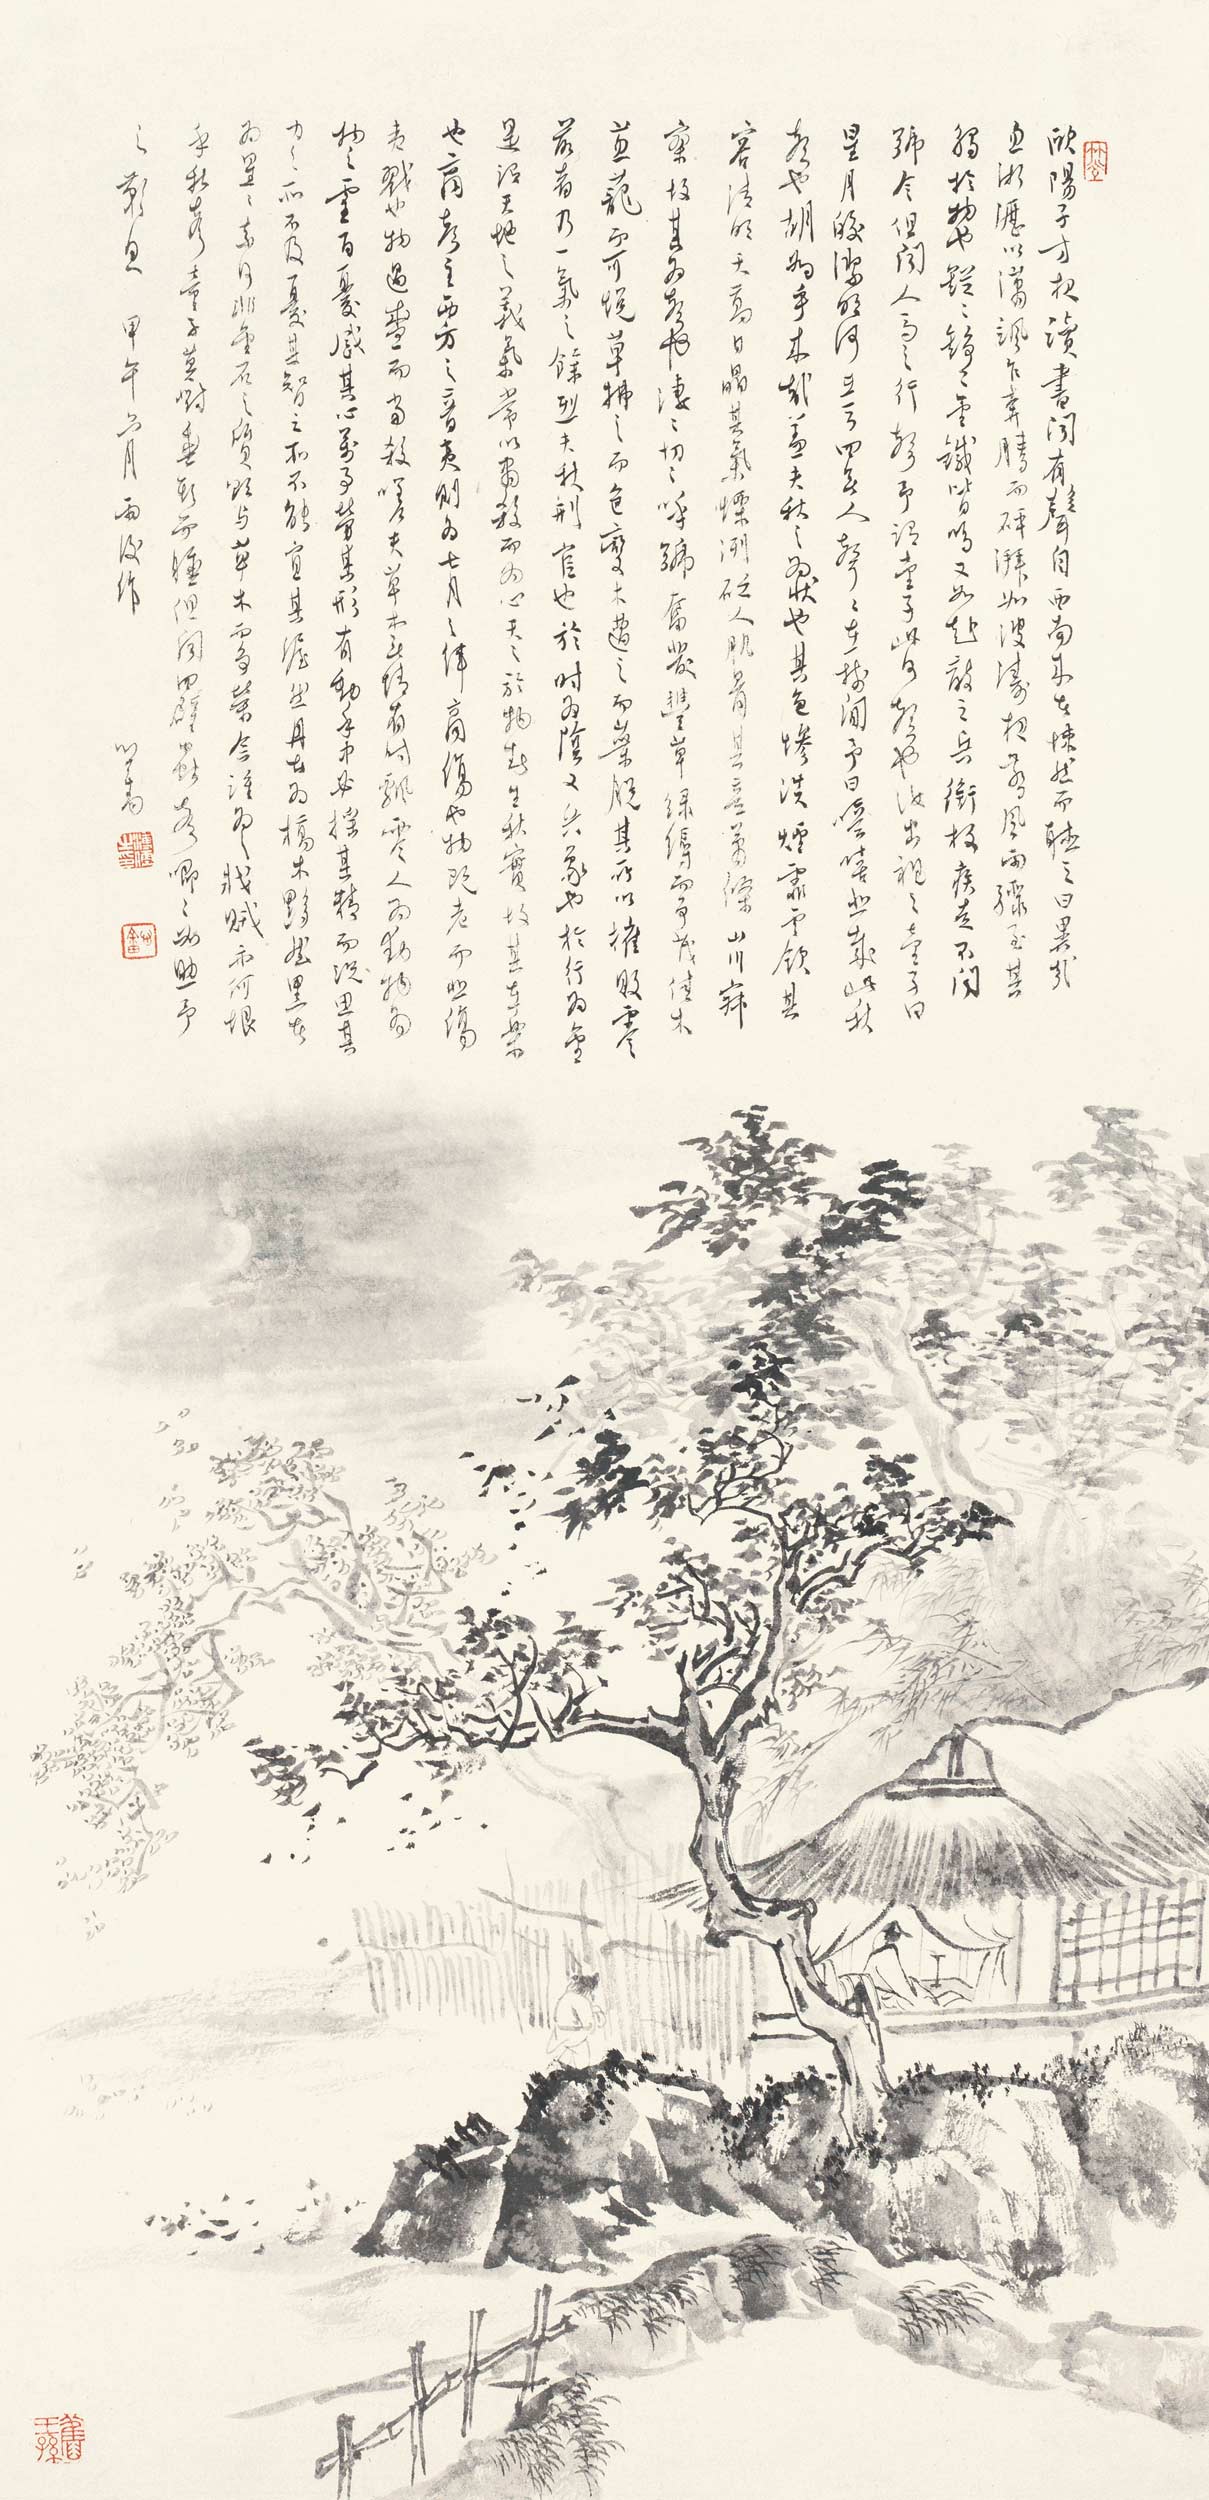 歐陽子方夜讀書聞有聲自西南來者悚然而聽之曰異哉
忽淅瀝以瀟颯乍奔騰而砰湃如波濤夜驚風雨驟至其
觸於物也鏦〻錚〻金鐵皆鳴又如赴敵之兵銜枚疾走不聞
號令但聞人馬之行聲予謂童子此何聲也汝出視之童子曰
星月皎潔明河在天四無人聲〻在樹間予曰噫嘻悲哉此秋
聲也胡為乎來哉蓋夫秋之為狀也其色慘淡煙霏雲斂其
容清明天高日晶其氣慄冽砭人肌骨其意蕭條山川寂
寥故其為聲也淒〻切〻呼號奮發豐草綠縟而爭茂佳木
蔥蘢而可悅草拂之而色變木遭之而葉脫其所以摧敗零
落者乃一氣之餘烈夫秋刑官也於時為陰又兵象也於行為金
是謂天地之義氣常以肅殺而為心天之於物春生秋實故其在樂
也商聲主西方之音夷則為七月之律商傷也物既老而悲傷
夷戮也物過盛而當殺嗟夫草木無情有時飄零人為動物為
物之靈百憂感其心萬事勞其形有動乎中必搖其精而況思其
力之所不及憂其智之所不能宜其渥然丹者為槁木黟然黑者
為星〻奈何非金石之質欲與草木而爭榮念誰為之戕賊亦何恨
乎秋聲童子莫對垂頭而睡但聞四壁蟲聲唧〻如助予
之歎息 甲午六月雨後作
心畬
舊王孫